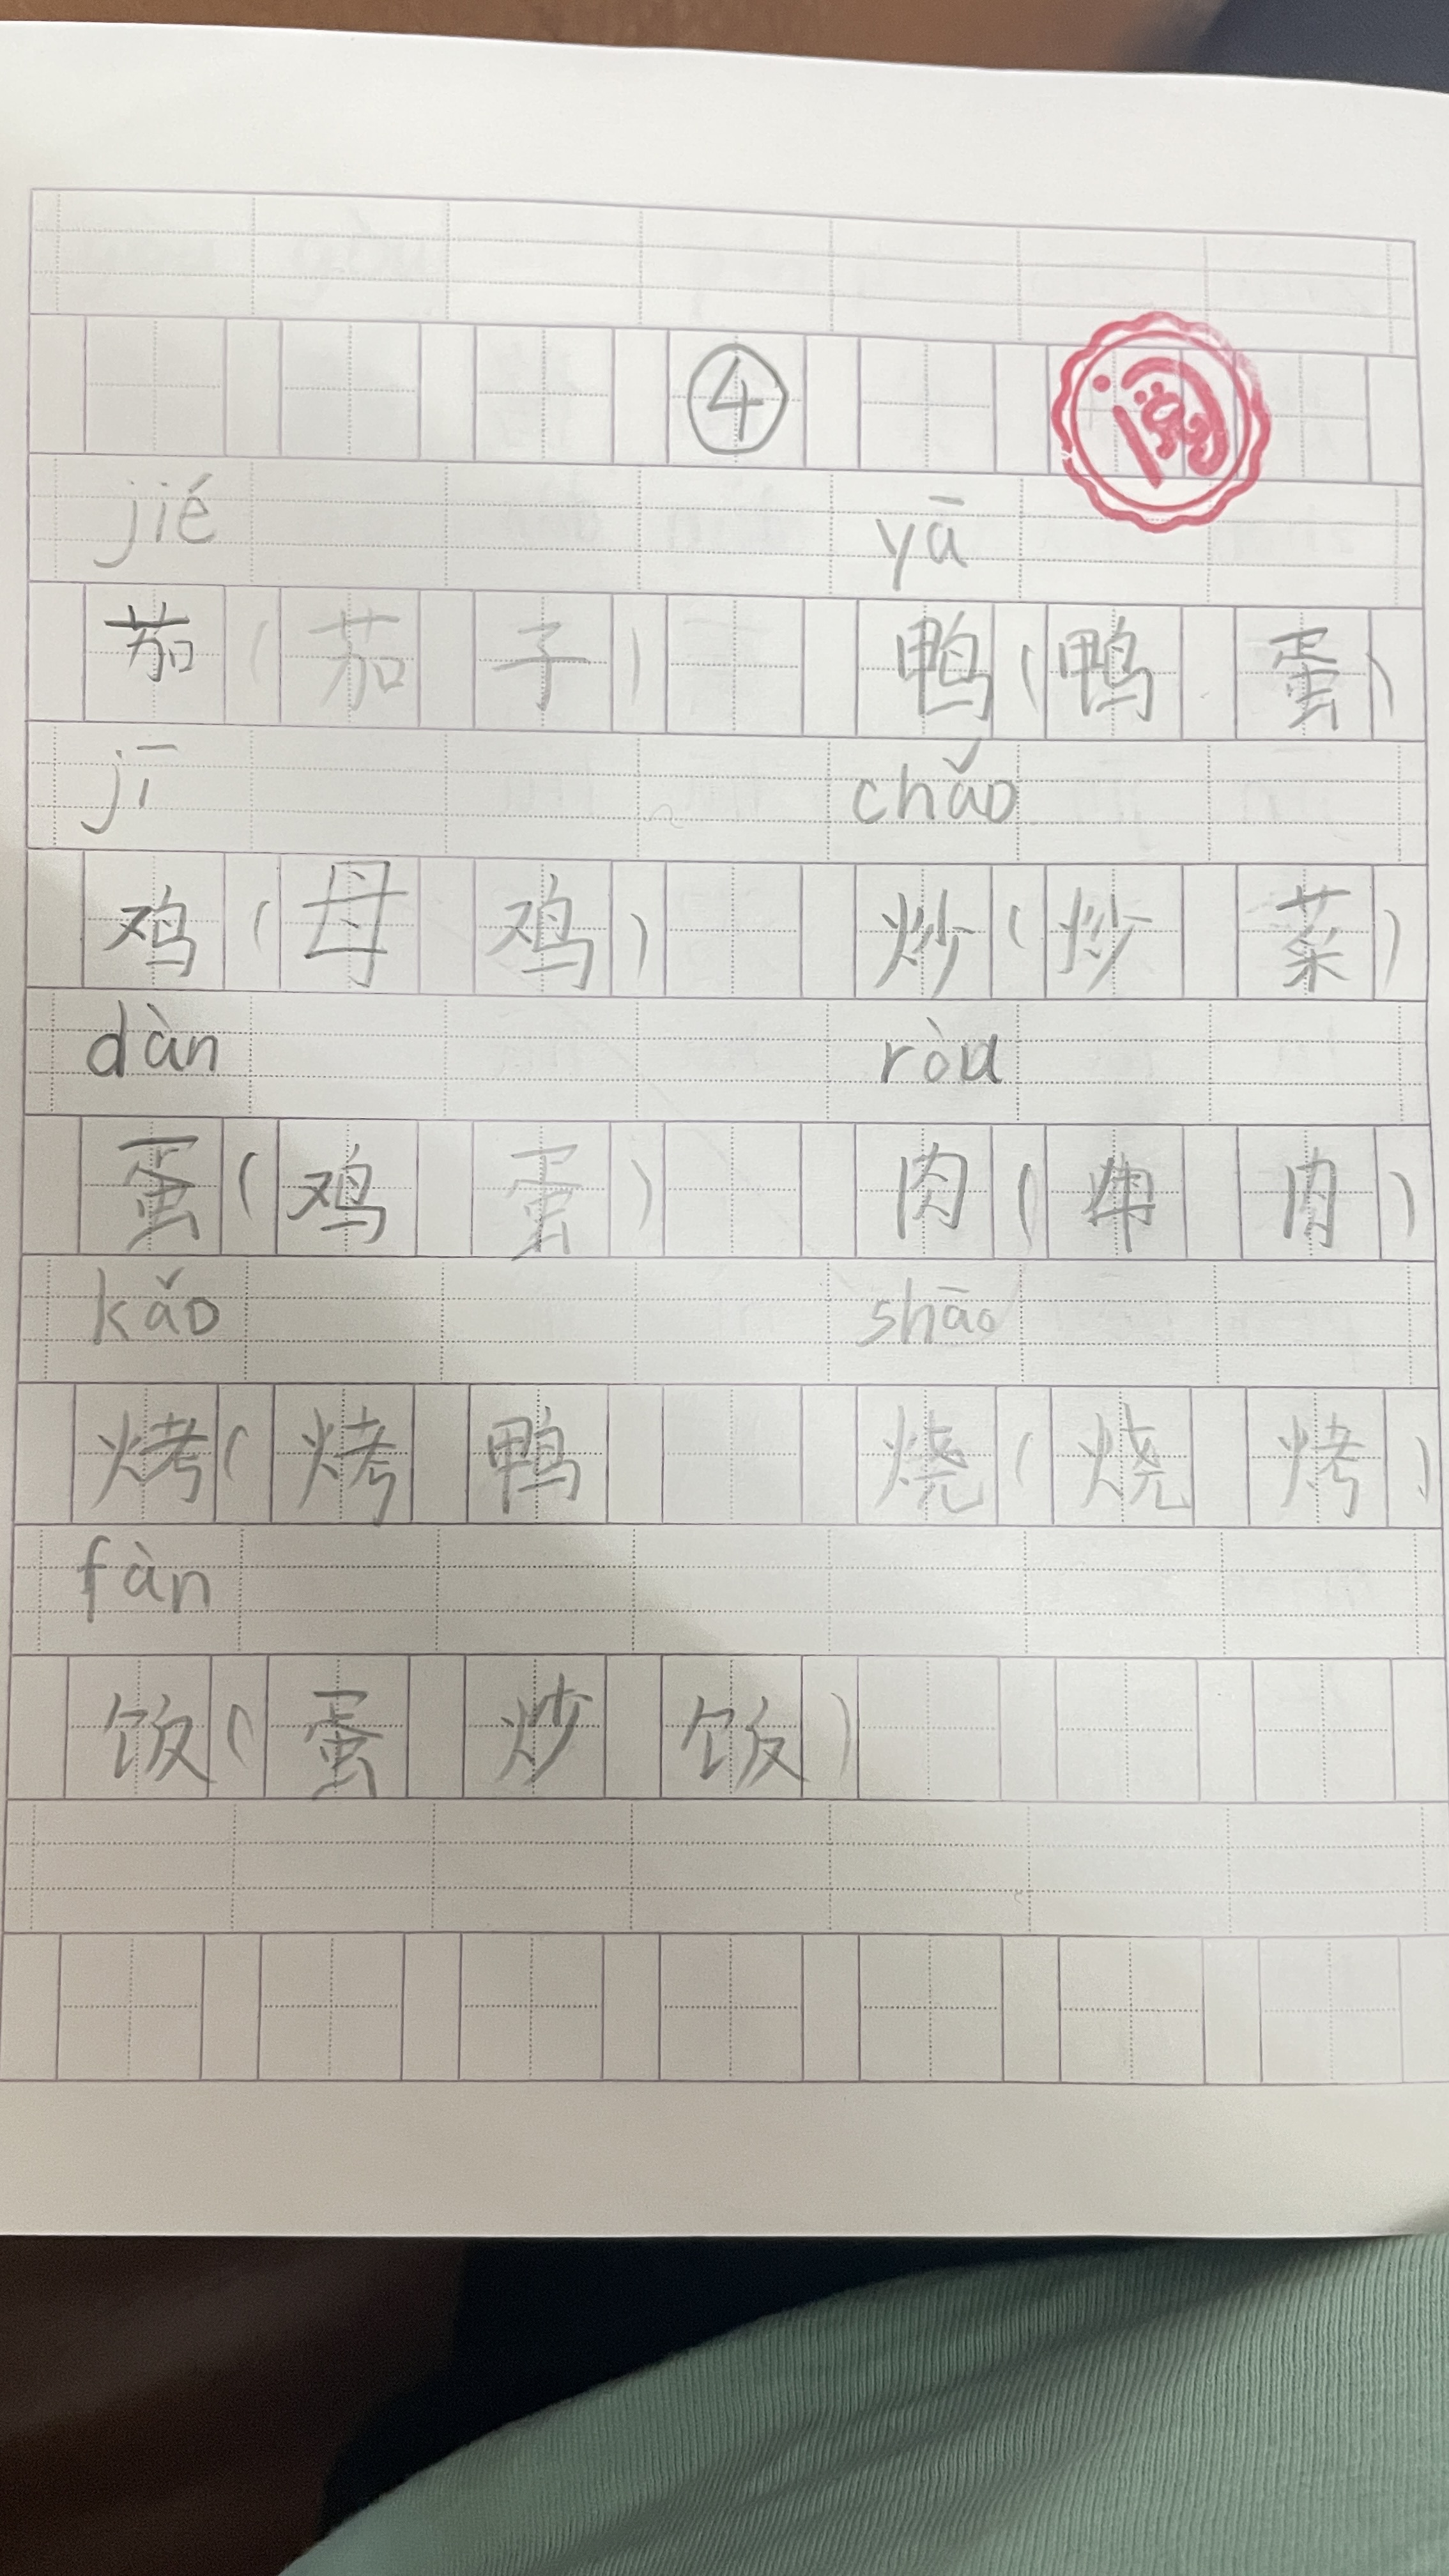 ④
阅
jié yā
茄(茄子) 鸭(鸭蛋)
jī chǎo
鸡(母鸡) 炒(炒菜)
dàn ròu
蛋(鸡蛋) 肉( 肉)
kǎo shāo
烤(烤鸭 烧(烧烤)
fàn
饭(蛋炒饭)